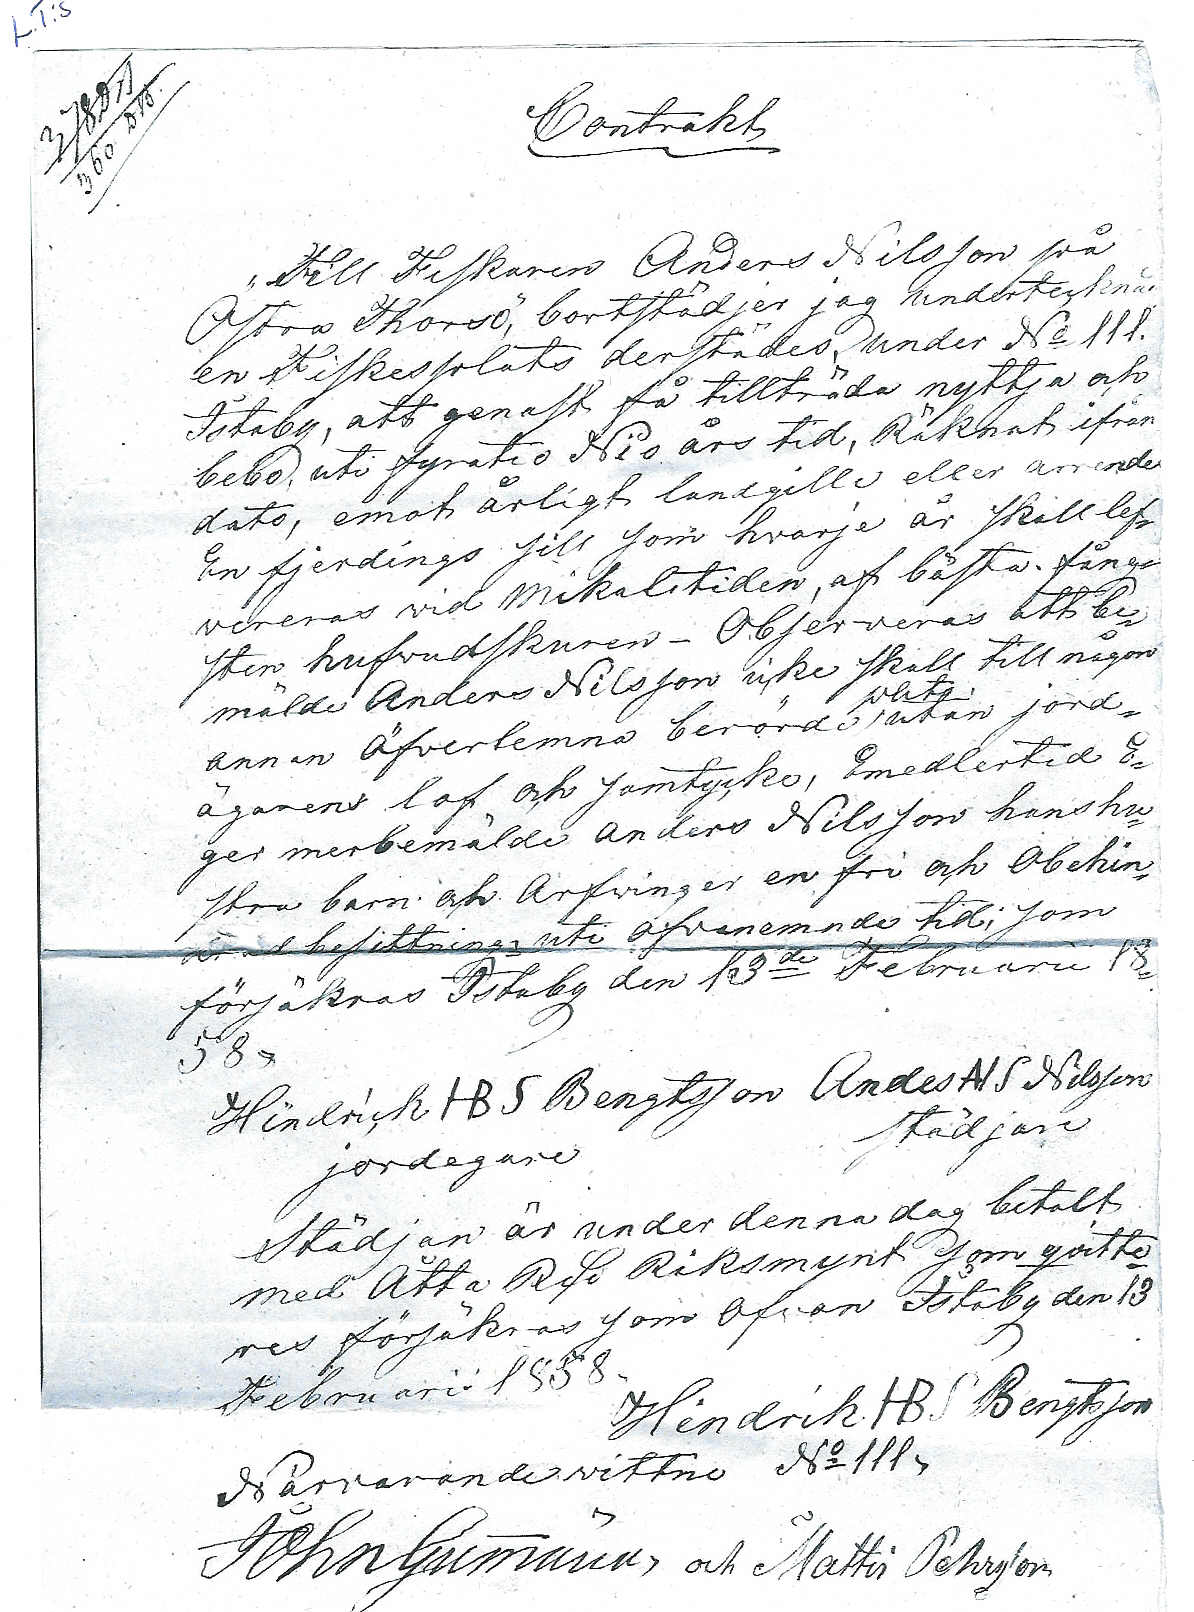 L.T:s
Contrakt
Till Fiskaren Anders Nilsson på
Östra Thorsö, bortstädjer jag underteckna
en Fiskesplats derstädes, under No 111.
Istaby, att genast få tillträda nyttja och
bebo, uti fyratio Nio års tid, Räknat ifrån
dato, emot årligt landgille eller arrende
En fjerdings sill som hvarje år skall lef-
vereras vid Mikalitiden, af bästa fång-
sten hufvudskuren - Observeras att be-
mälde Anders Nilsson icke skall till någon
annan öfverlemna berörde plats utan jord-
ägarens lof och samtycke, Emedlertid E-
ger merbemälde Anders Nilsson hans hu-
stru barn och Arfvingar en fri och Obehin-
drad besittning uti ofvanemnde tid; som
försäkras Istaby den 13de Februarii 18-
58,
Hindrick HBS Bengtsson Andes ANS Nilsson
städjare
jordegare
Städjan är under denna dag betalt
med Åtta Rd Riksmynt som qvitte-
res försäkras som ofvan Istaby den 13
Februarii 1858.
Hindrik HBS Bengtsson
No 111,
Närvarande vittne
John och Mattis Pehrsson